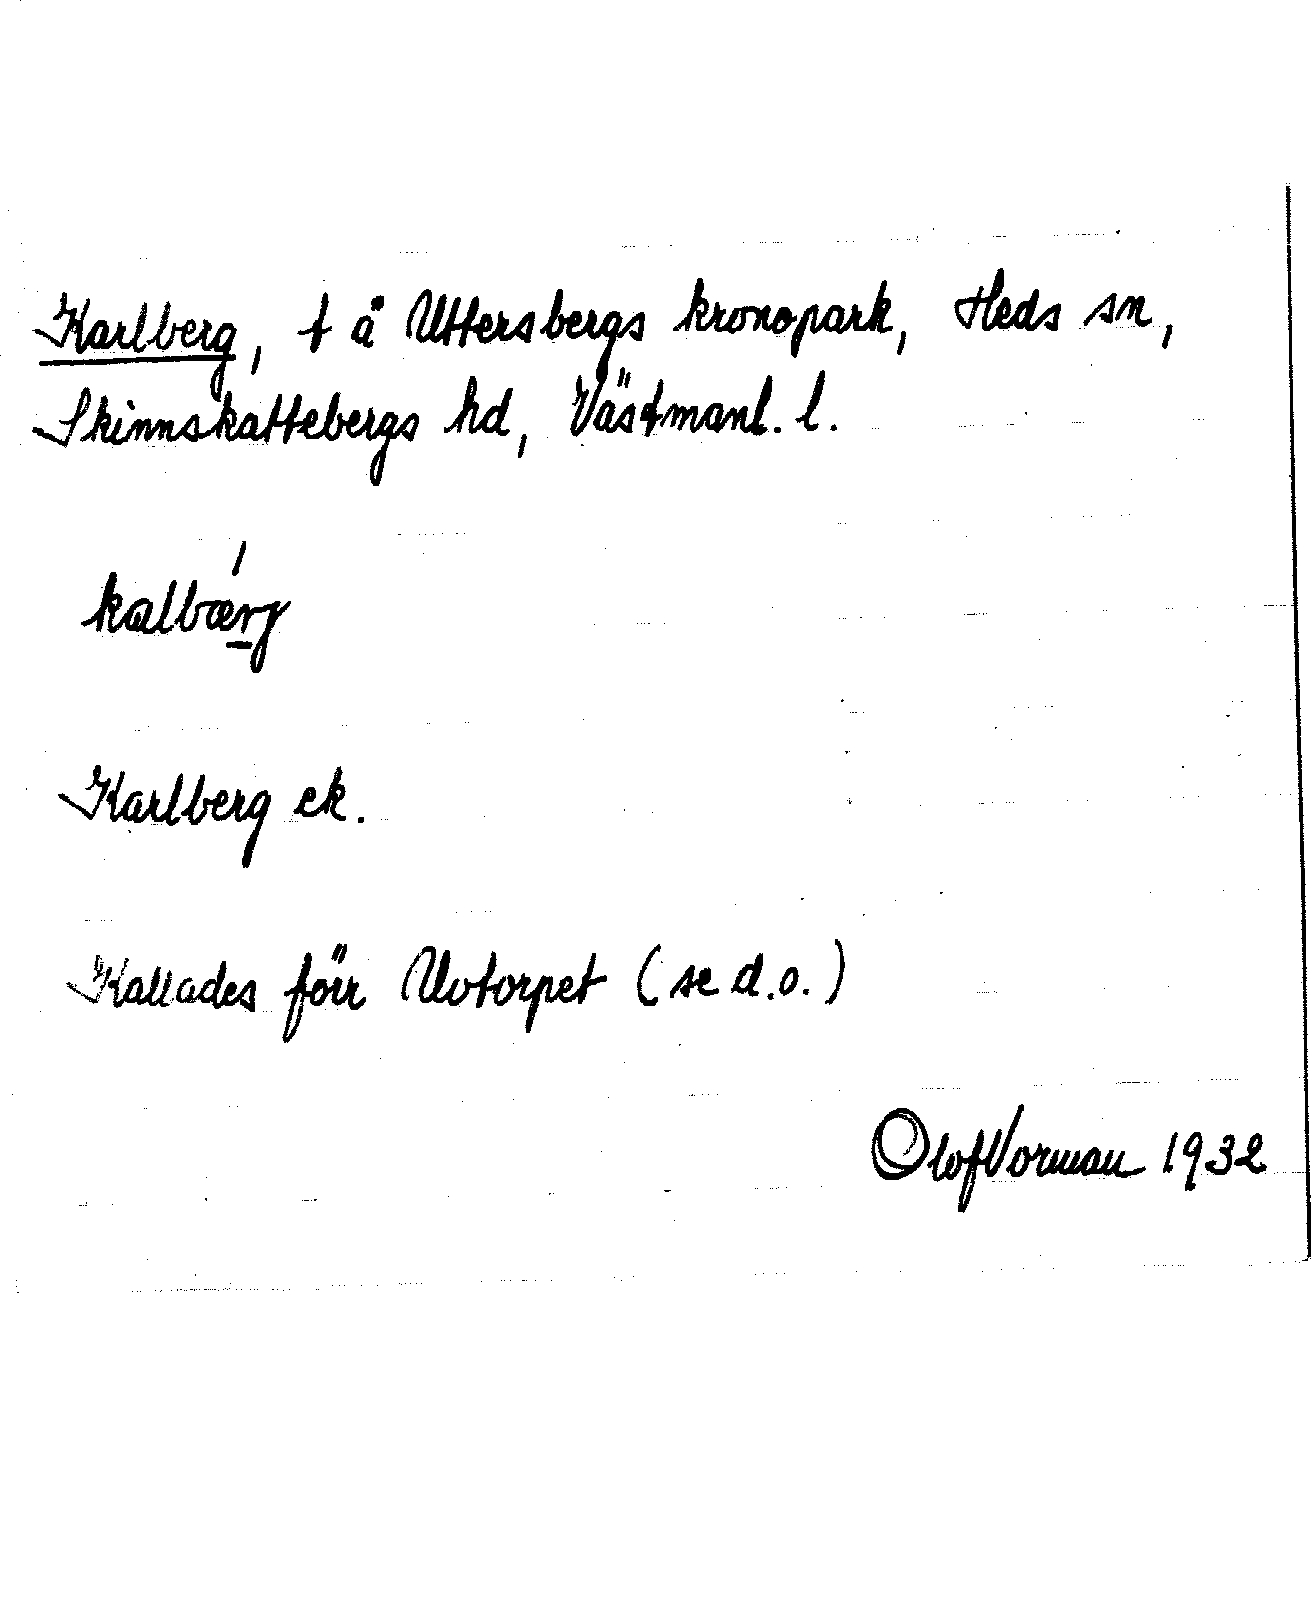 Karlberg, t å Uttersbergs kronopark, Heds sn,
Skinnskattebergs hd, Västmanl. l.
kalbærj
Karlberg ek.
Kallades förr Uvtorpet (se d.o.)
Olof Vorman 1932